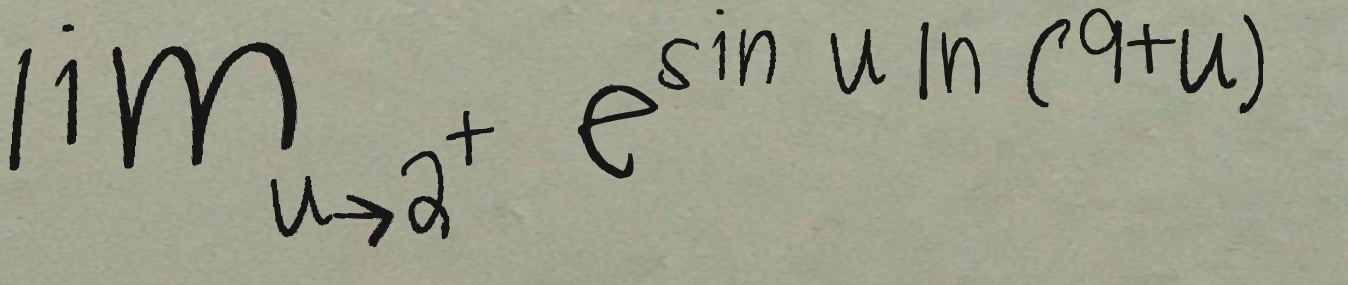 lim_{u \to 2^+} e^{\sin u \ln (9+u)}